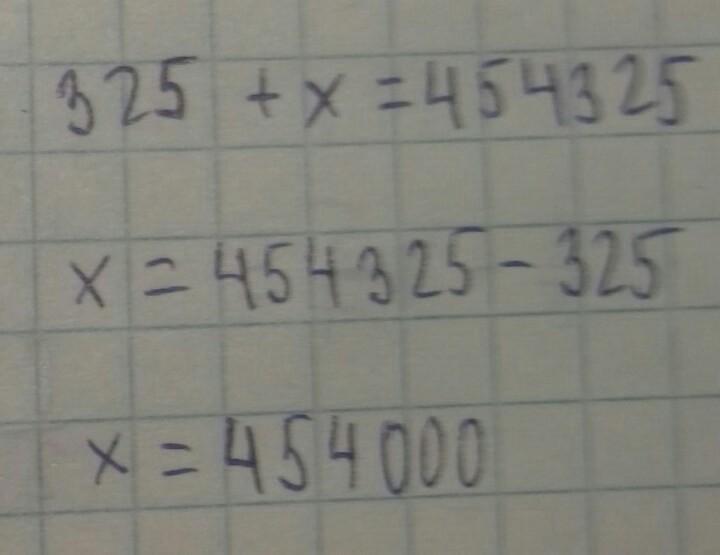 325 + x = 454325
x = 454325 - 325
x = 454000